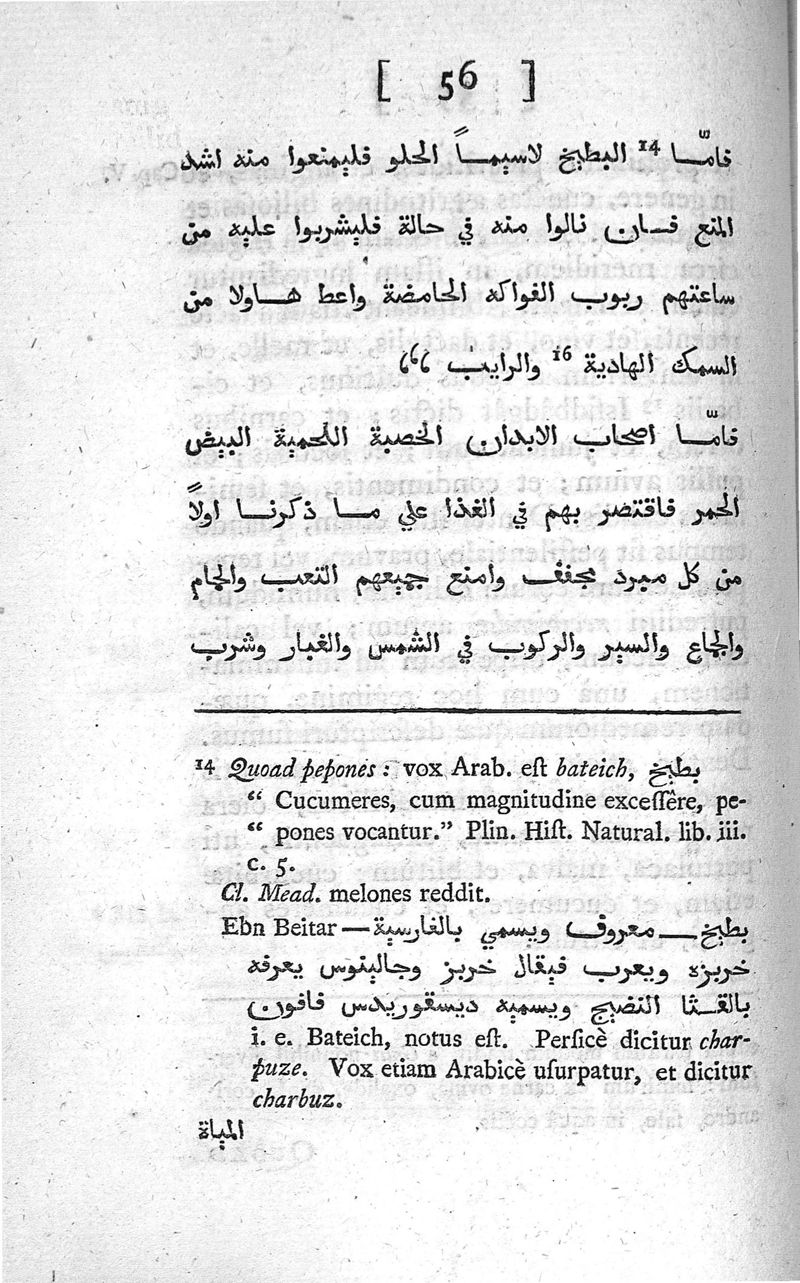 [ 56 ]
فامّا 14 البطيخ لاسيماً الحلو فليمنعوا منه اشد
المنع فان نالوا منه في حالة فليشربوا عليه من
ساعتهم ربوب الفواكه الحامضة واعط هاولا من
السمك الهادية 16 والرايب
فامّا اصحاب الابدان الخصبة اللحمية البيض
الحمر فاقتضر بهم في الغذا علي ما ذكرنا اولاً
من كل مبرد مجفف وامنع جميعهم التعب والحمام
والجماع والسير والركوب في الشمس والغبار وشرب
14 Quoad pepones : vox Arab. eſt bateich, بطيخ
“ Cucumeres, cum magnitudine exceſſêre, pe-
“ pones vocantur.” Plin. Hiſt. Natural. lib. iii.
c. 5.
Cl. Mead. melones reddit.
Ebn Beitar — بطيخ معروف ويسمي بالفارسية
خربزه ويعرب فيقال خربز وجالينوس يعرفه
بالقثا النضيج ويسميه ديسقوريدس فافون
i. e. Bateich, notus eſt. Perſicè dicitur char-
puze. Vox etiam Arabicè uſurpatur, et dicitur
charbuz.
المياة